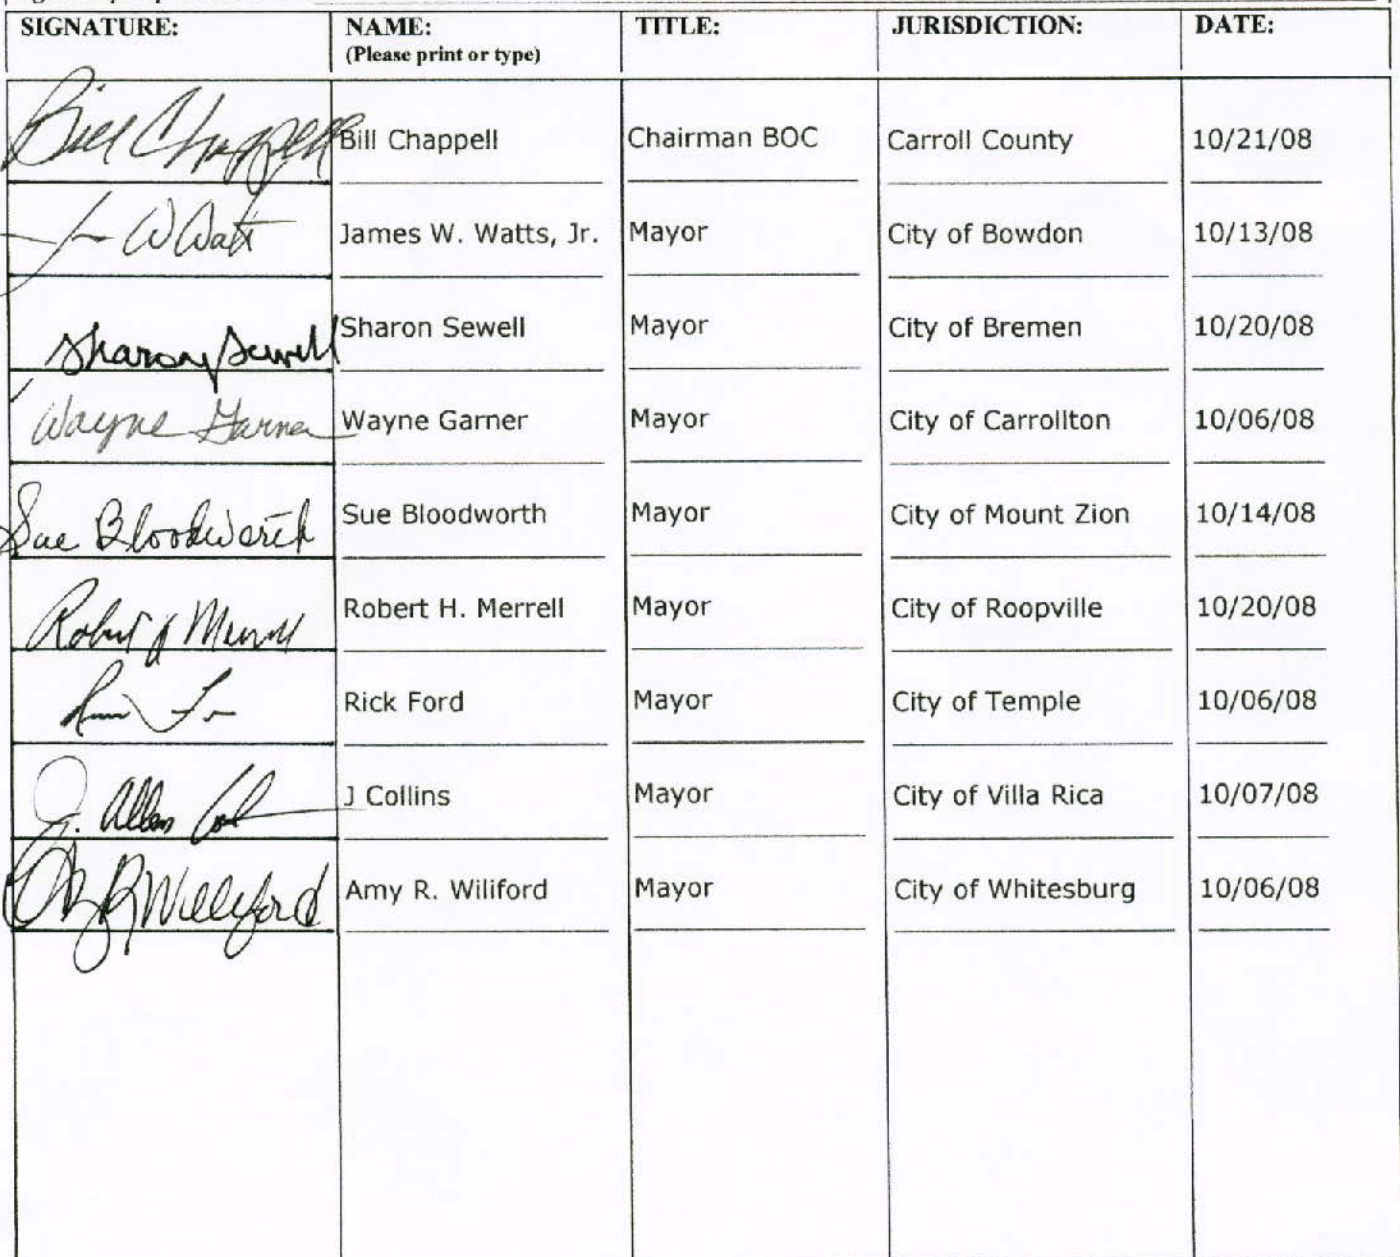 SIGNATURE: NAME: TITLE: JURISDICTION: DATE:
(Please print or type)
Bill Chappell Bill Chappell Chairman BOC Carroll County 10/21/08
W Watt James W. Watts, Jr. Mayor City of Bowdon 10/13/08
Sharon Sewell Sharon Sewell Mayor City of Bremen 10/20/08
Wayne Garner Wayne Garner Mayor City of Carrollton 10/06/08
Sue Bloodworth Sue Bloodworth Mayor City of Mount Zion 10/14/08
Robert Merrell Robert H. Merrell Mayor City of Roopville 10/20/08
Rick Ford Mayor City of Temple 10/06/08
J. Allen J Collins Mayor City of Villa Rica 10/07/08
R Williford Amy R. Wiliford Mayor City of Whitesburg 10/06/08